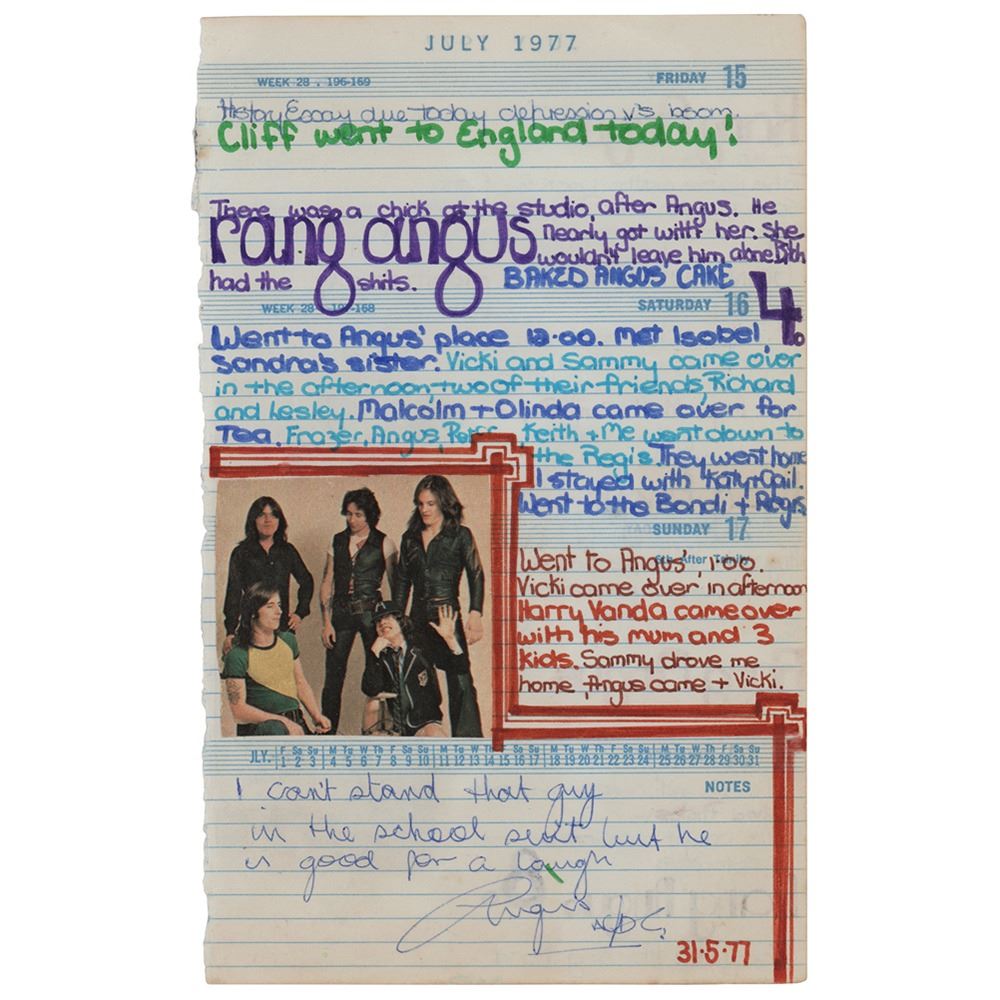 JULY 1977
WEEK 28 . 196-169
FRIDAY 15
History Essay due today depression v's boom.
Cliff went to England today!
There was a chick at the studio after Angus. He
rang angus
nearly got with her. She
wouldn't leave him alone Bitch
had the shits.
BAKED ANGUS CAKE
4
WEEK 28 -168
SATURDAY 16
Went to Angus' place 12.00. Met Isobel,
Sandra's sister. Vicki and Sammy came over
in the afternoon, two of their friends, Richard
and Lesley. Malcolm + Olinda came over for
Tea. Frazer, Angus, Keith + Me went down to
the Regis. They went home
I stayed with Katy + Gail.
Went to the Bondi + Regis
SUNDAY 17
6th After Trinity
Went to Angus', 1.00.
Vicki came over in afternoon
Harry Vanda came over
with his mum and 3
kids. Sammy drove me
home, Angus came + Vicki.
JLY. F Sa Su M Tu W Th F Sa Su M Tu W Th F Sa Su M Tu W Th F Sa Su M Tu W Th F Sa Su
1 2 3 4 5 6 7 8 9 10 11 12 13 14 15 16 17 18 19 20 21 22 23 24 25 26 27 28 29 30 31
NOTES
I can't stand that guy
in the school suit but he
is good for a laugh
Angus AC/DC.
31.5.77